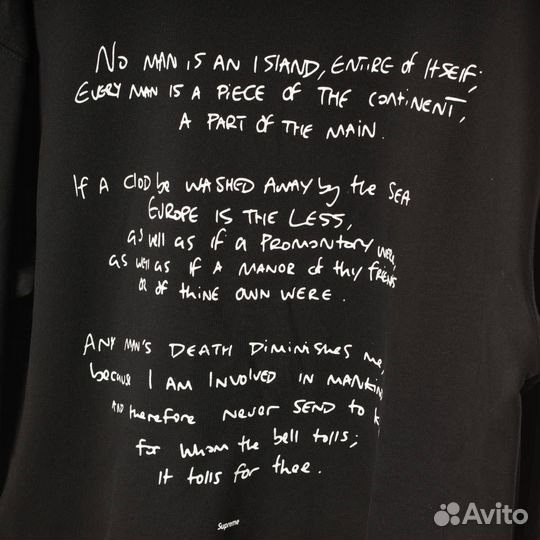 NO MAN IS AN ISLAND, ENTIRE of ITSELF;
EVERY MAN IS A PIECE OF THE CONTINENT,
A PART OF THE MAIN.
IF A Clod be WASHED AWAY by the SEA
EUROPE IS THE LESS,
as well as if a PROMONTORY WERE,
as well as IF A MANOR of thy FRIENDS
OR OF thine OWN WERE.
ANY MAN'S DEATH DIMINISHES me,
because I AM INVOLVED IN MANKIN
AND therefore never SEND to k
for whom the bell tolls;
It tolls for thee.
Supreme
Avito